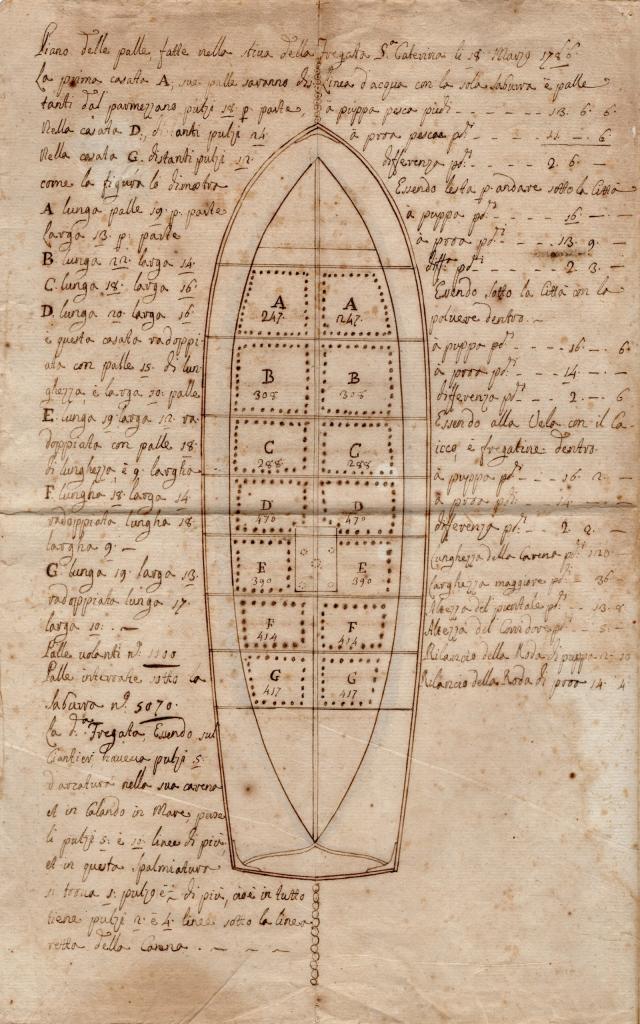 Piano delle palle, fatte nella stiva della Fregata S.ta Caterina li 18 Marzo 1786
La prima casata A, sue palle saranno di
tanti dal parmezzano pulzi 18 p parte,
Nella casata D, distanti pulzi 24
Nella casata G distanti pulzi 12
come la figura lo dimostra
A lunga palle 19 p parte
larga 13 p parte
B lunga 22 larga 14
C lunga 18 larga 16
D lunga 20 larga 16
e questa casata radoppi
ata con palle 15 di lun
ghezza, è larga 10 palle
E lunga 19 larga 12 ra
doppiata con palle 18
di lunghezza è 9 larghe
F lungha 18 larga 14
radoppiata lungha 18
largha 9
G lunga 19 larga 13
radoppiata lunga 17
larga 10
Palle volanti n.o 1100
Palle interrate sotto la
saburra n.o 5070
La d.ta Fregata, Essendo sul
Cantier, haveva pulzi 5
d'arcatura nella sua carena
et in Calando in Mare, pure
li pulzi 5 è 10 linee di più,
et in questa spalmatura
si trova 1 pulzo è di più, cioè in tutto
tiene pulzi 2 è 4 linee sotto la linea
retta della Carena
Linea d'acqua con la sola saburra è palle
à puppa pesca piedi 13 6 6
à proa pesca p.di 11 6
differenza p.di 2 6
Essendo lesta p andare sotto la Città
à puppa p.di 16
à proa p.di 13 9
diff.a p.di 2 3
Essendo sotto la Città con la
polvere dentro
à puppa p.di 16 6
à proa p.di 14
differenza p.di 2 6
Essendo alla Vela con il Ca
icco è fregatine dentro
à puppa p.di 16 2
à proa p.di 14
differenza p.di 2 2
Lunghezza della Carena p.di 120
Larghezza maggiore p.di 36
Altezza del puntale p.di 13 8
Altezza del Corridor p.di 5
Rilancio della Roda di puppa 2 10
Rilancio della Roda di proa 14 4
A A
247 247
B B
308 308
C C
288 288
D D
470 470
E E
390 390
F F
414 414
G G
417 417